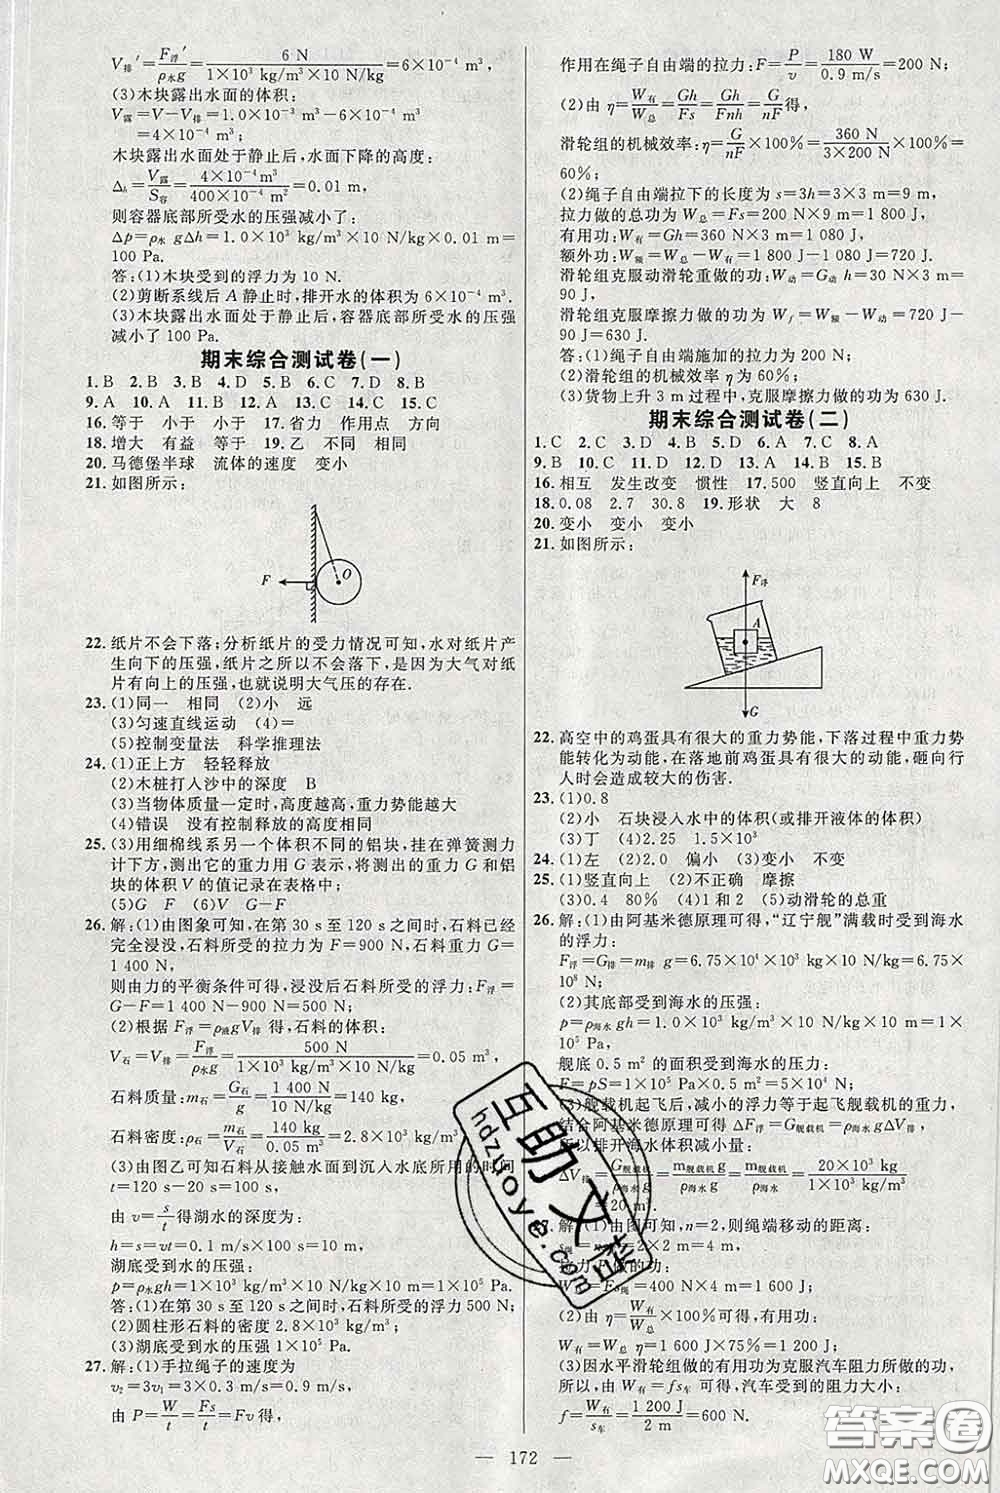 V排′=F浮′/ρ水g=6 N/(1×10³ kg/m³×10 N/kg)=6×10⁻⁴ m³,
(3)木块露出水面的体积:
V露=V−V排=1.0×10⁻³ m³−6×10⁻⁴ m³
=4×10⁻⁴ m³;
木块露出水面处于静止后,水面下降的高度:
Δh=V露/S容=4×10⁻⁴ m³/(400×10⁻⁴ m²)=0.01 m,
则容器底部所受水的压强减小了:
Δp=ρ水 gΔh=1.0×10³ kg/m³×10 N/kg×0.01 m
=100 Pa.
答:(1)木块受到的浮力为 10 N.
(2)剪断系线后 A 静止时,排开水的体积为 6×10⁻⁴ m³.
(3)木块露出水面处于静止后,容器底部所受水的压强
减小了 100 Pa.
期末综合测试卷(一)
1. B 2. B 3. B 4. D 5. B 6. C 7. D 8. B
9. A 10. A 11. B 12. C 13. D 14. C 15. C
16. 等于 小于 小于 17. 省力 作用点 方向
18. 增大 有益 等于 19. 乙 不同 相同
20. 马德堡半球 流体的速度 变小
21. 如图所示:
F O
22. 纸片不会下落;分析纸片的受力情况可知,水对纸片产
生向下的压强,纸片之所以不会落下,是因为大气对纸
片有向上的压强,也就说明大气压的存在.
23. (1)同一 相同 (2)小 远
(3)匀速直线运动 (4)=
(5)控制变量法 科学推理法
24. (1)正上方 轻轻释放
(2)木桩打入沙中的深度 B
(3)当物体质量一定时,高度越高,重力势能越大
(4)错误 没有控制释放的高度相同
25. (3)用细棉线系另一个体积不同的铝块,挂在弹簧测力
计下方,测出它的重力用 G 表示,将测出的重力 G 和铝
块的体积 V 的值记录在表格中;
(5)G F (6)V G−F
26. 解:(1)由图象可知,在第 30 s 至 120 s 之间时,石料已经
完全浸没,石料所受的拉力为 F=900 N,石料重力 G=
1 400 N,
则由力的平衡条件可得,浸没后石料所受的浮力:F浮=
G−F=1 400 N−900 N=500 N;
(2)根据 F浮=ρ液gV排 得,石料的体积:
V石=V排=F浮/ρ水g=500 N/(1×10³ kg/m³×10 N/kg)=0.05 m³,
石料质量:m石=G石/g=1 400 N/(10 N/kg)=140 kg,
石料密度:ρ石=m石/V石=140 kg/0.05 m³=2.8×10³ kg/m³;
(3)由图乙可知石料从接触水面到沉入水底所用的时间
t=120 s−20 s=100 s,
由 v=s/t得湖水的深度为:
h=s=vt=0.1 m/s×100 s=10 m,
湖底受到水的压强:
p=ρ水gh=1×10³ kg/m³×10 N/kg×10 m=1×10⁵ Pa.
答:(1)在第 30 s 至 120 s 之间时,石料所受的浮力 500 N;
(2)圆柱形石料的密度 2.8×10³ kg/m³;
(3)湖底受到水的压强 1×10⁵ Pa.
27. 解:(1)手拉绳子的速度为
v₂=3v₁=3×0.3 m/s=0.9 m/s,
由 P=W/t=Fs/t=Fv得,
作用在绳子自由端的拉力:F=P/v=180 W/(0.9 m/s)=200 N;
(2)由 η=W有/W总=Gh/Fs=Gh/Fnh=G/nF得,
滑轮组的机械效率:η=G/nF×100%=360 N/(3×200 N)×100%=
60%;
(2)绳子自由端拉下的长度为 s=3h=3×3 m=9 m,
拉力做的总功为 W总=Fs=200 N×9 m=1 800 J,
有用功:W有=Gh=360 N×3 m=1 080 J,
额外功:W额=W总−W有=1 800 J−1 080 J=720 J,
滑轮组克服动滑轮重做的功:W动=G动 h=30 N×3 m=
90 J,
滑轮组克服摩擦力做的功 Wf=W额−W动=720 J−
90 J=630 J.
答:(1)绳子自由端施加的拉力为 200 N;
(2)滑轮组的机械效率 η 为 60%;
(3)货物上升 3 m 过程中,克服摩擦力做的功为 630 J.
期末综合测试卷(二)
1. C 2. C 3. C 4. D 5. B 6. A 7. C 8. A
9. B 10. B 11. D 12. D 13. A 14. B 15. B
16. 相互 发生改变 惯性 17. 500 竖直向上 不变
18. 0.08 2.7 30.8 19. 形状 大 8
20. 变小 变小 变小
21. 如图所示:
F浮
A
G
22. 高空中的鸡蛋具有很大的重力势能,下落过程中重力势
能转化为动能,在落地前鸡蛋具有很大的动能,砸向行
人时会造成较大的伤害.
23. (1)0.8
(2)小 石块浸入水中的体积(或排开液体的体积)
(3)丁 (4)2.25 1.5×10³
24. (1)左 (2)2.0 偏小 (3)变小 不变
25. (1)竖直向上 (2)不正确 摩擦
(3)0.4 80% (4)1 和 2 (5)动滑轮的总重
26. 解:(1)由阿基米德原理可得,“辽宁舰”满载时受到海水
的浮力:
F浮=G排=m排 g=6.75×10⁴×10³ kg×10 N/kg=6.75×
10⁸ N;
(2)其底部受到海水的压强:
p=ρ海水 gh=1.0×10³ kg/m³×10 N/kg×10 m=1×10⁵ Pa,
舰底 0.5 m² 的面积受到海水的压力:
F=pS=1×10⁵ Pa×0.5 m²=5×10⁴ N;
(3)舰载机起飞后,减小的浮力等于起飞舰载机的重力,
结合阿基米德原理可得 ΔF浮=G舰载机=ρ海水gΔV排,
所以排开海水体积减小量:
ΔV排=G舰载机/ρ海水g=m舰载机g/ρ海水g=m舰载机/ρ海水=20×10³ kg/(1×10³ kg/m³)
=20 m³.
解:(1)由图可知,n=2,则绳端移动的距离:
=2×2 m=4 m,
做的功:
=Fs绳=400 N×4 m=1 600 J;
(2)由 η=W有/W总×100%可得,有用功:
W有=W总η=1 600 J×75%=1 200 J;
(3)因水平滑轮组做的有用功为克服汽车阻力所做的功,
所以,由 W有=fs车 可得,汽车受到的阻力大小:
f=W有/s车=1 200 J/2 m=600 N.
— 172 —
互助文哲
hdzuoye.com
答案圈
MXQE.COM